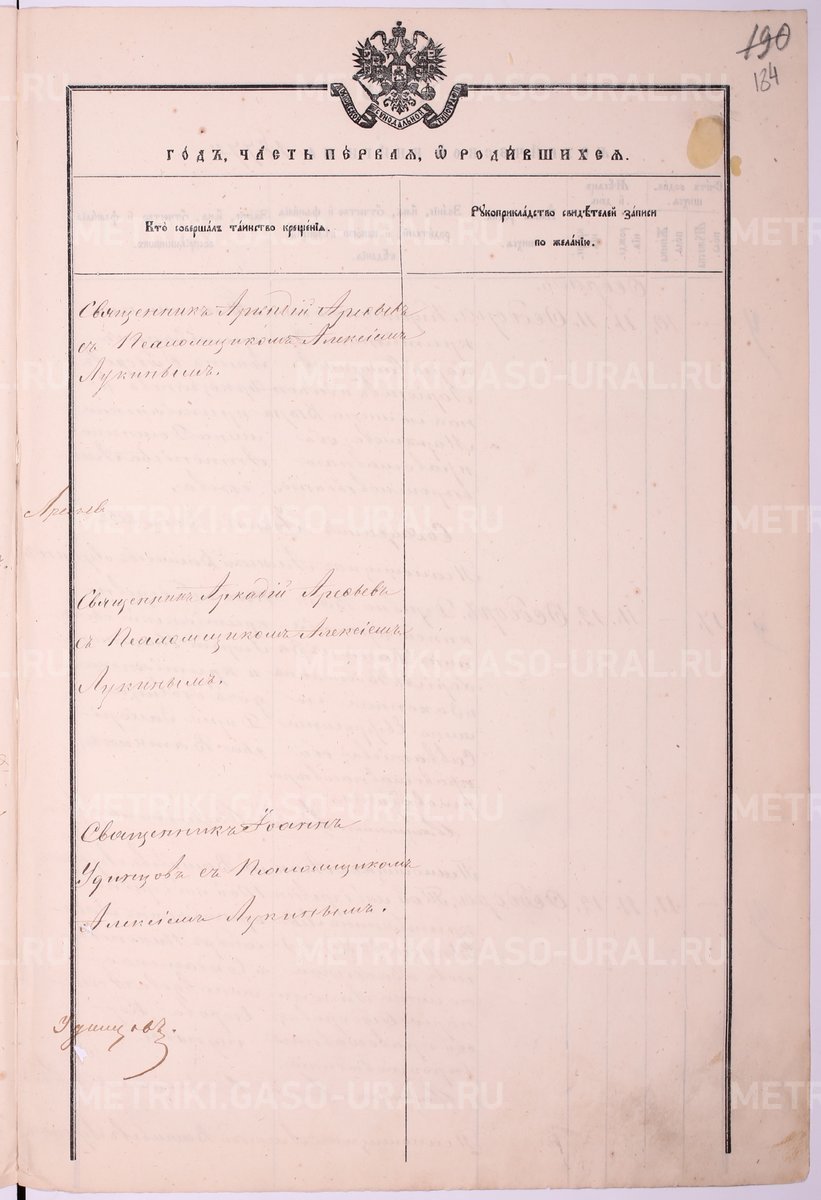 190
134
МОСКОВСКОЙ СѴНОДАЛЬНОЙ ТИПОГРАФІИ
ГОДЪ, ЧАСТЬ ПЕРВАЯ, Ѿ РОДИВШИХСЯ.
Кто совершалъ таинство крещенія.
Рукоприкладство свидѣтелей записи
по желанію.
Священникъ Аркадій Арефьевъ
съ Псаломщикомъ Алексіемъ
Лукинымъ.
Арефьев
Священникъ Аркадій Арефьевъ
съ Псаломщикомъ Алексіемъ
Лукинымъ.
Священникъ Іоаннъ
Удинцовъ съ Псаломщикомъ
Алексіемъ Лукинымъ.
Удинцовъ.
METRIKI.GASO-URAL.RU